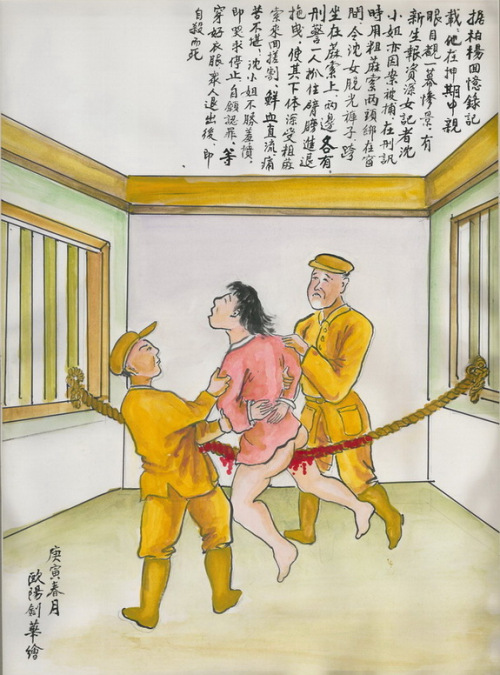 據柏楊回憶錄記
載,他在押期中親
眼目覩一幕慘景,有
新生報資深女記者沈
小姐亦因案被捕在刑訊
時用粗蔴索兩頭綁在窗
間,令沈女脫光褲子,跨
坐在蔴索上,兩邊各有
刑警一人抓住臂膀進退
拖曳,使其下体深受粗蔴
索來回搓割,鮮血直流,痛
苦不堪,沈小姐不勝羞憤,
即哭求停止,自願認罪,等
穿好衣服眾人退出後,即
自殺而死
庚寅春月
歐陽劍華繪